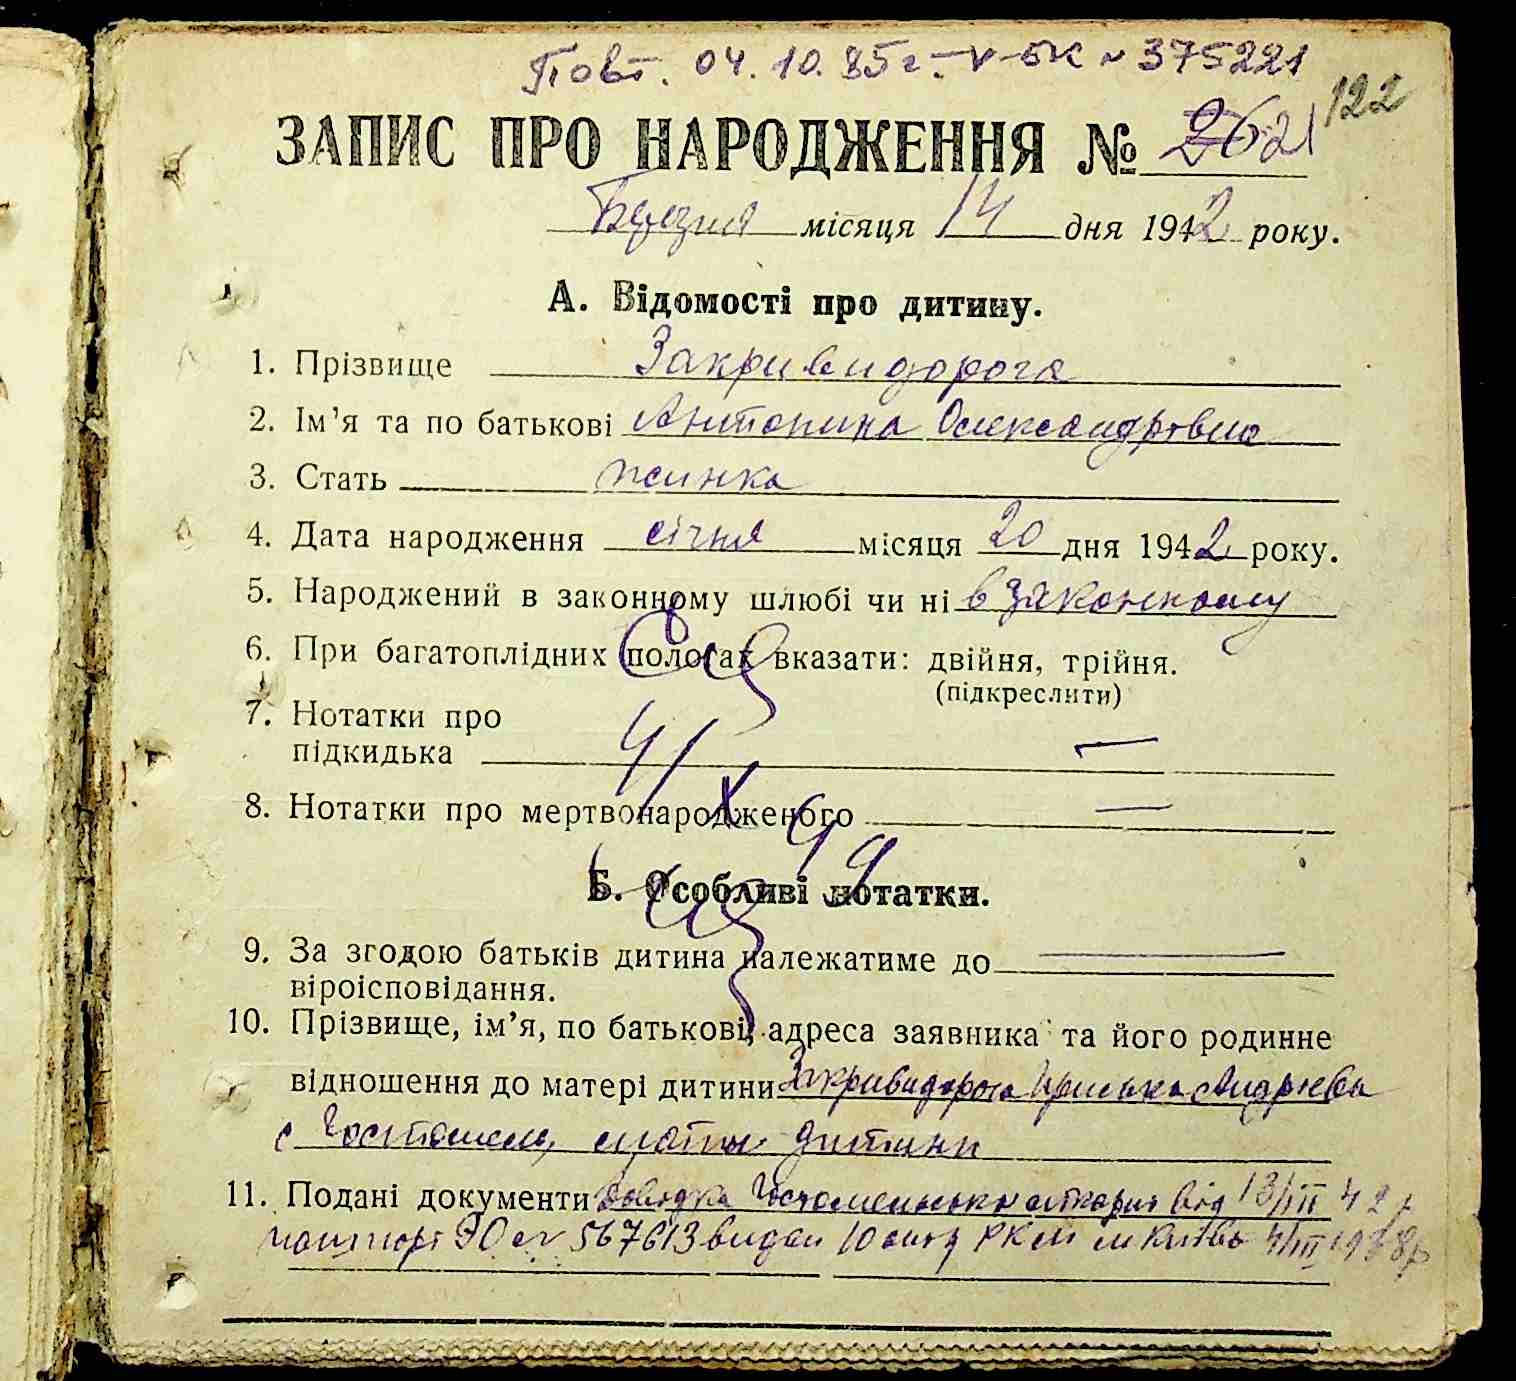 Повт. 04.10.85 г. V-БК № 375221
122
ЗАПИС ПРО НАРОДЖЕННЯ № 2621
Березня місяця 14 дня 1942 року.
А. Відомості про дитину.
1. Прізвище Закривидорога
2. Ім'я та по батькові Антонина Олександрівна
3. Стать жинка
4. Дата народження січня місяця 20 дня 1942 року.
5. Народжений в законному шлюбі чи ні в законному
6. При багатоплідних пологах вказати: двійня, трійня.
(підкреслити)
7. Нотатки про
підкидька —
8. Нотатки про мертвонародженого —
Б. Особливі нотатки.
9. За згодою батьків дитина належатиме до —
віроісповідання.
10. Прізвище, ім'я, по батькові, адреса заявника та його родинне
відношення до матері дитини Закривидорога Андрієва
с Гостомель, мати дитини
11. Подані документи довідка від 13/III 42 р
паспорт № 567613 видан 10 РКМ м Київа 4/III 1938р